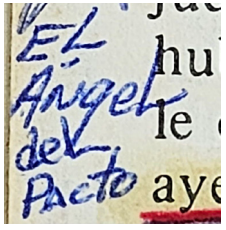 EL
Ángel
del
Pacto
hu
le
aye